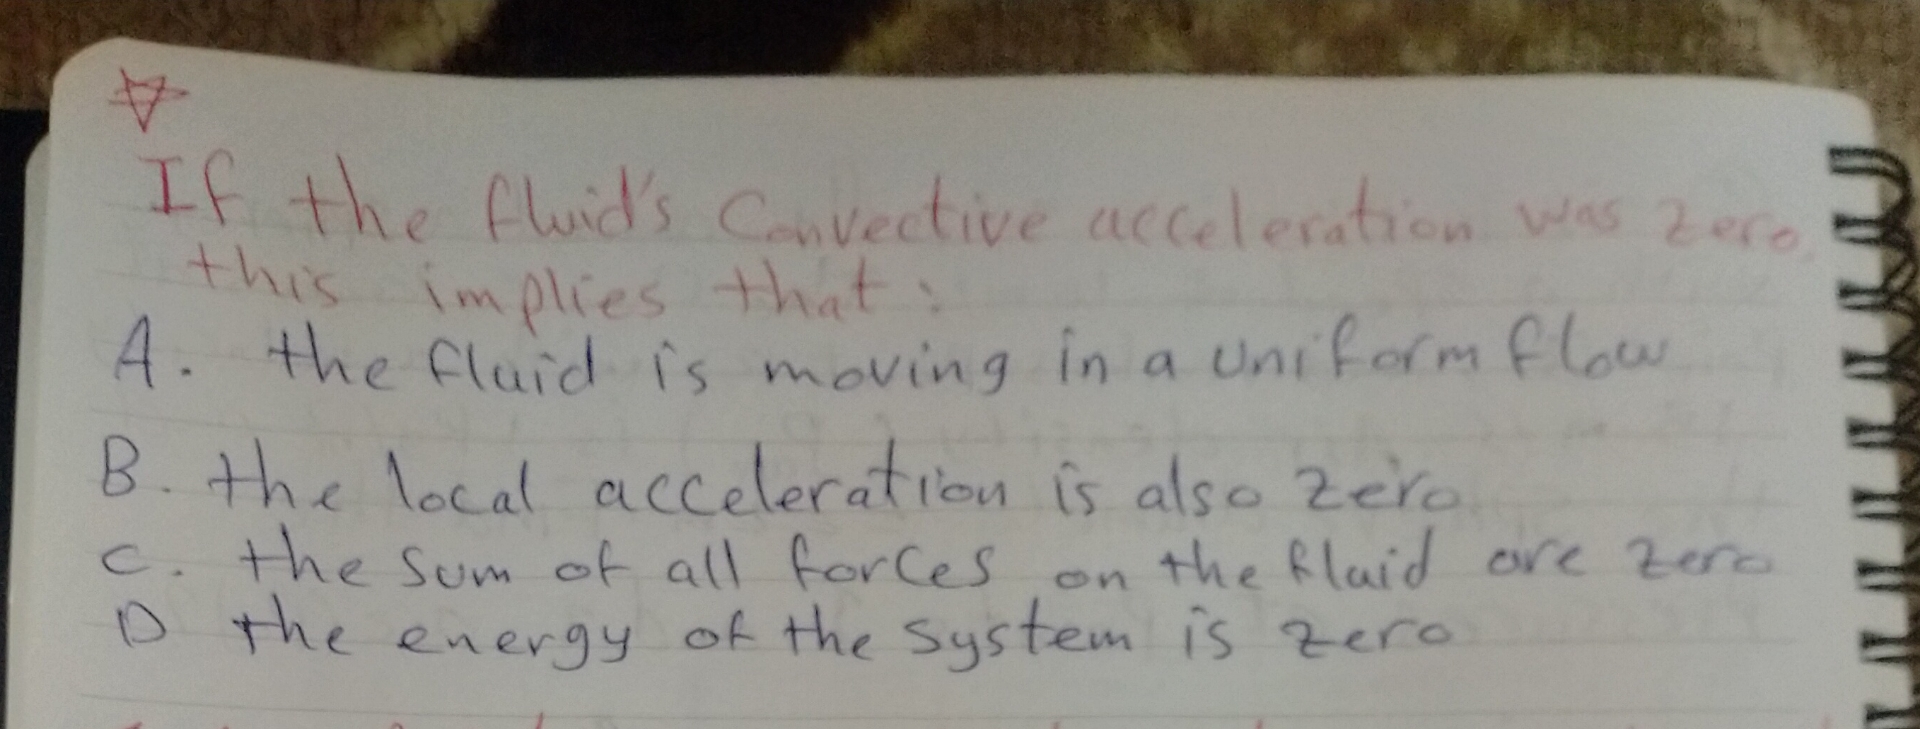 If the fluid's Convective acceleration was zero,
this implies that:
A. the fluid is moving in a uniform flow
B. the local acceleration is also zero
C. the sum of all forces on the fluid are zero
D the energy of the system is zero